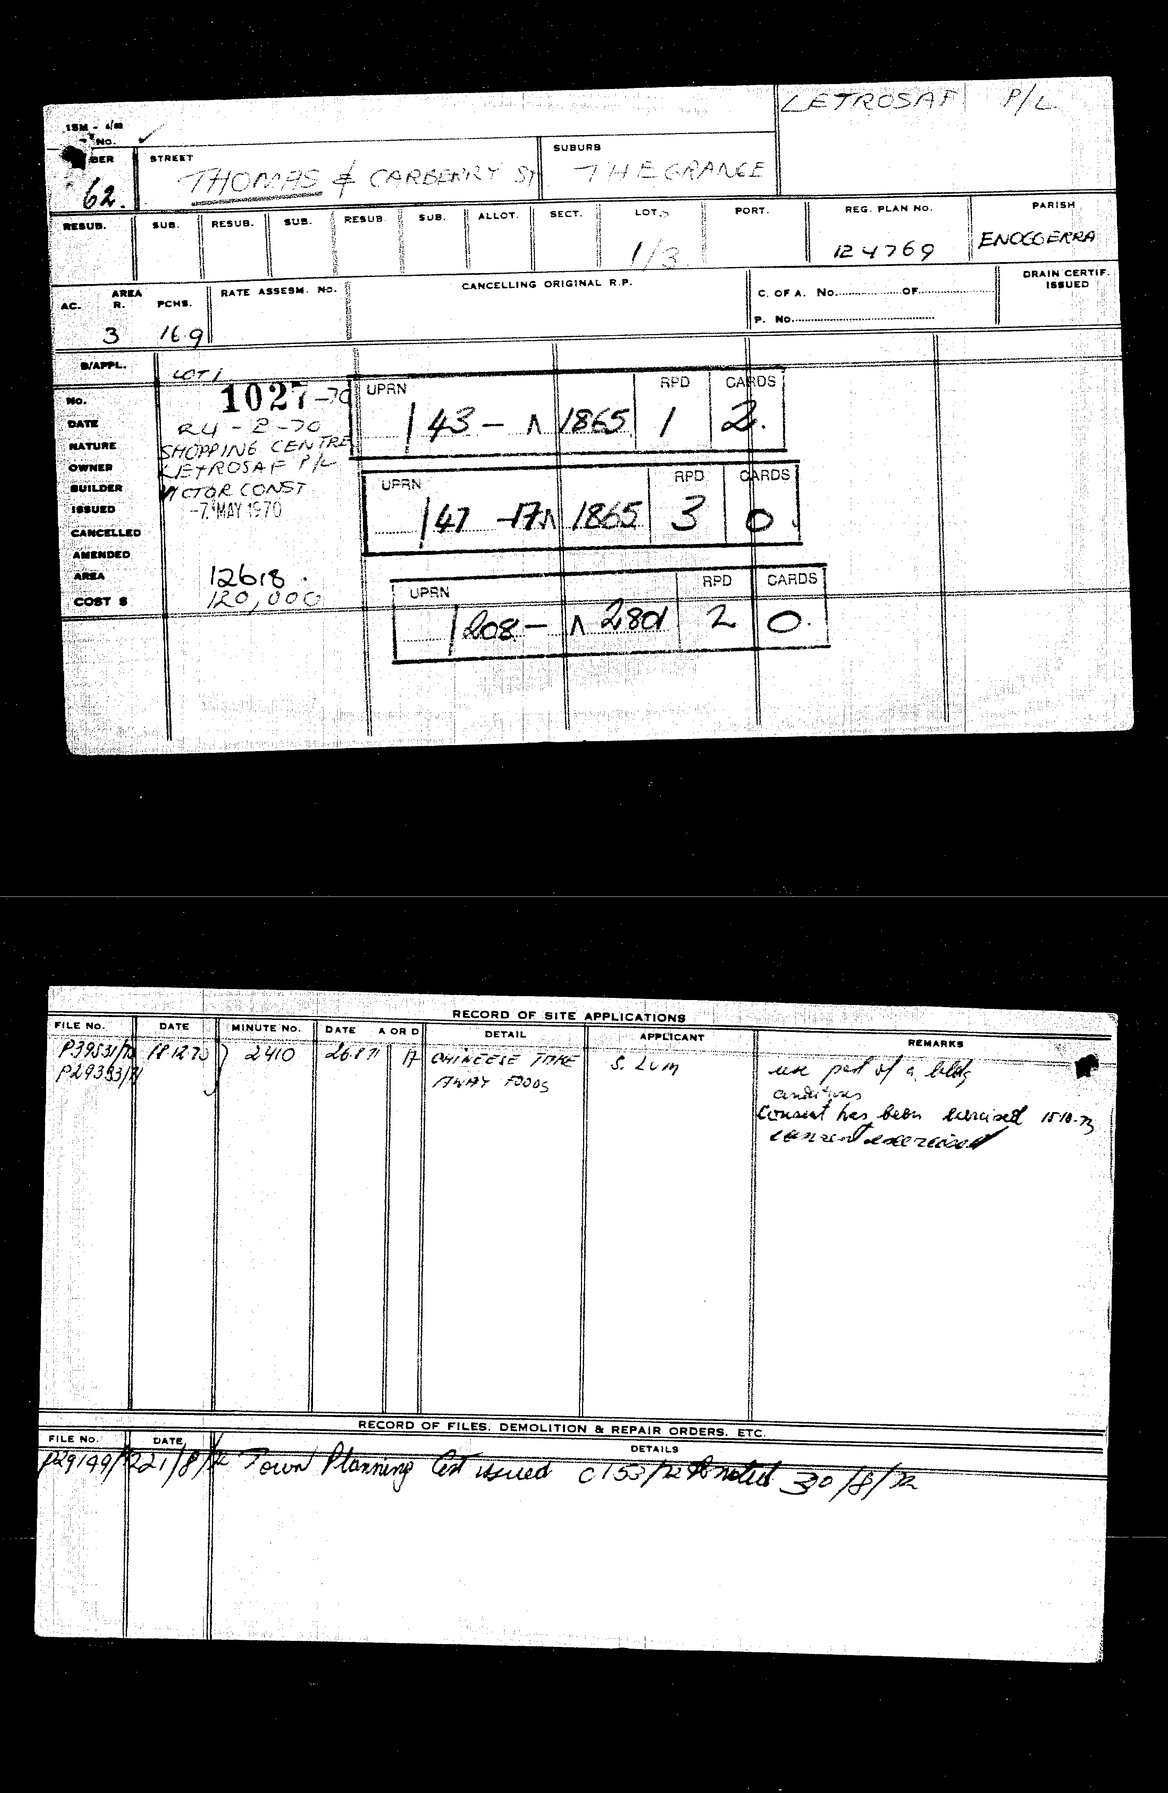 LETROSAF P/L
15M - 4/68
No.
BER STREET SUBURB
62. THOMAS & CARBERRY ST THE GRANGE
RESUB. SUB. RESUB. SUB. RESUB. SUB. ALLOT. SECT. LOT. PORT. REG. PLAN NO. PARISH
1/3 124769 ENOGGERRA
AREA RATE ASSESM. NO. CANCELLING ORIGINAL R.P. C. OF A. No. OF DRAIN CERTIF. ISSUED
AC. R. PCHS. P. No.
3 16.9
B/APPL. LOT 1
No. 1027-70
DATE 24-2-70
NATURE SHOPPING CENTRE
OWNER LETROSAF P/L
BUILDER VICTOR CONST
ISSUED -7 MAY 1970
CANCELLED
AMENDED
AREA 12618.
COST $ 120,000
UPRN RPD CARDS
/43 - Λ 1865 1 2.
UPRN RPD CARDS
/47 -17Λ 1865 3 0.
UPRN RPD CARDS
/208 - Λ 2801 2 0.
RECORD OF SITE APPLICATIONS
FILE No. DATE MINUTE NO. DATE A OR D DETAIL APPLICANT REMARKS
P39531/70 18.12.70 } 2410 26.8.71 A CHINEESE TAKE S. LUM use part of a bldg
P29353/71 AWAY FOODS conditions
Consent has been exercised 15.10.73
consent exercised
RECORD OF FILES. DEMOLITION & REPAIR ORDERS. ETC.
FILE No. DATE DETAILS
P29199/72 21/8/72 Town Planning Cert issued C153/72 noted 30/8/72